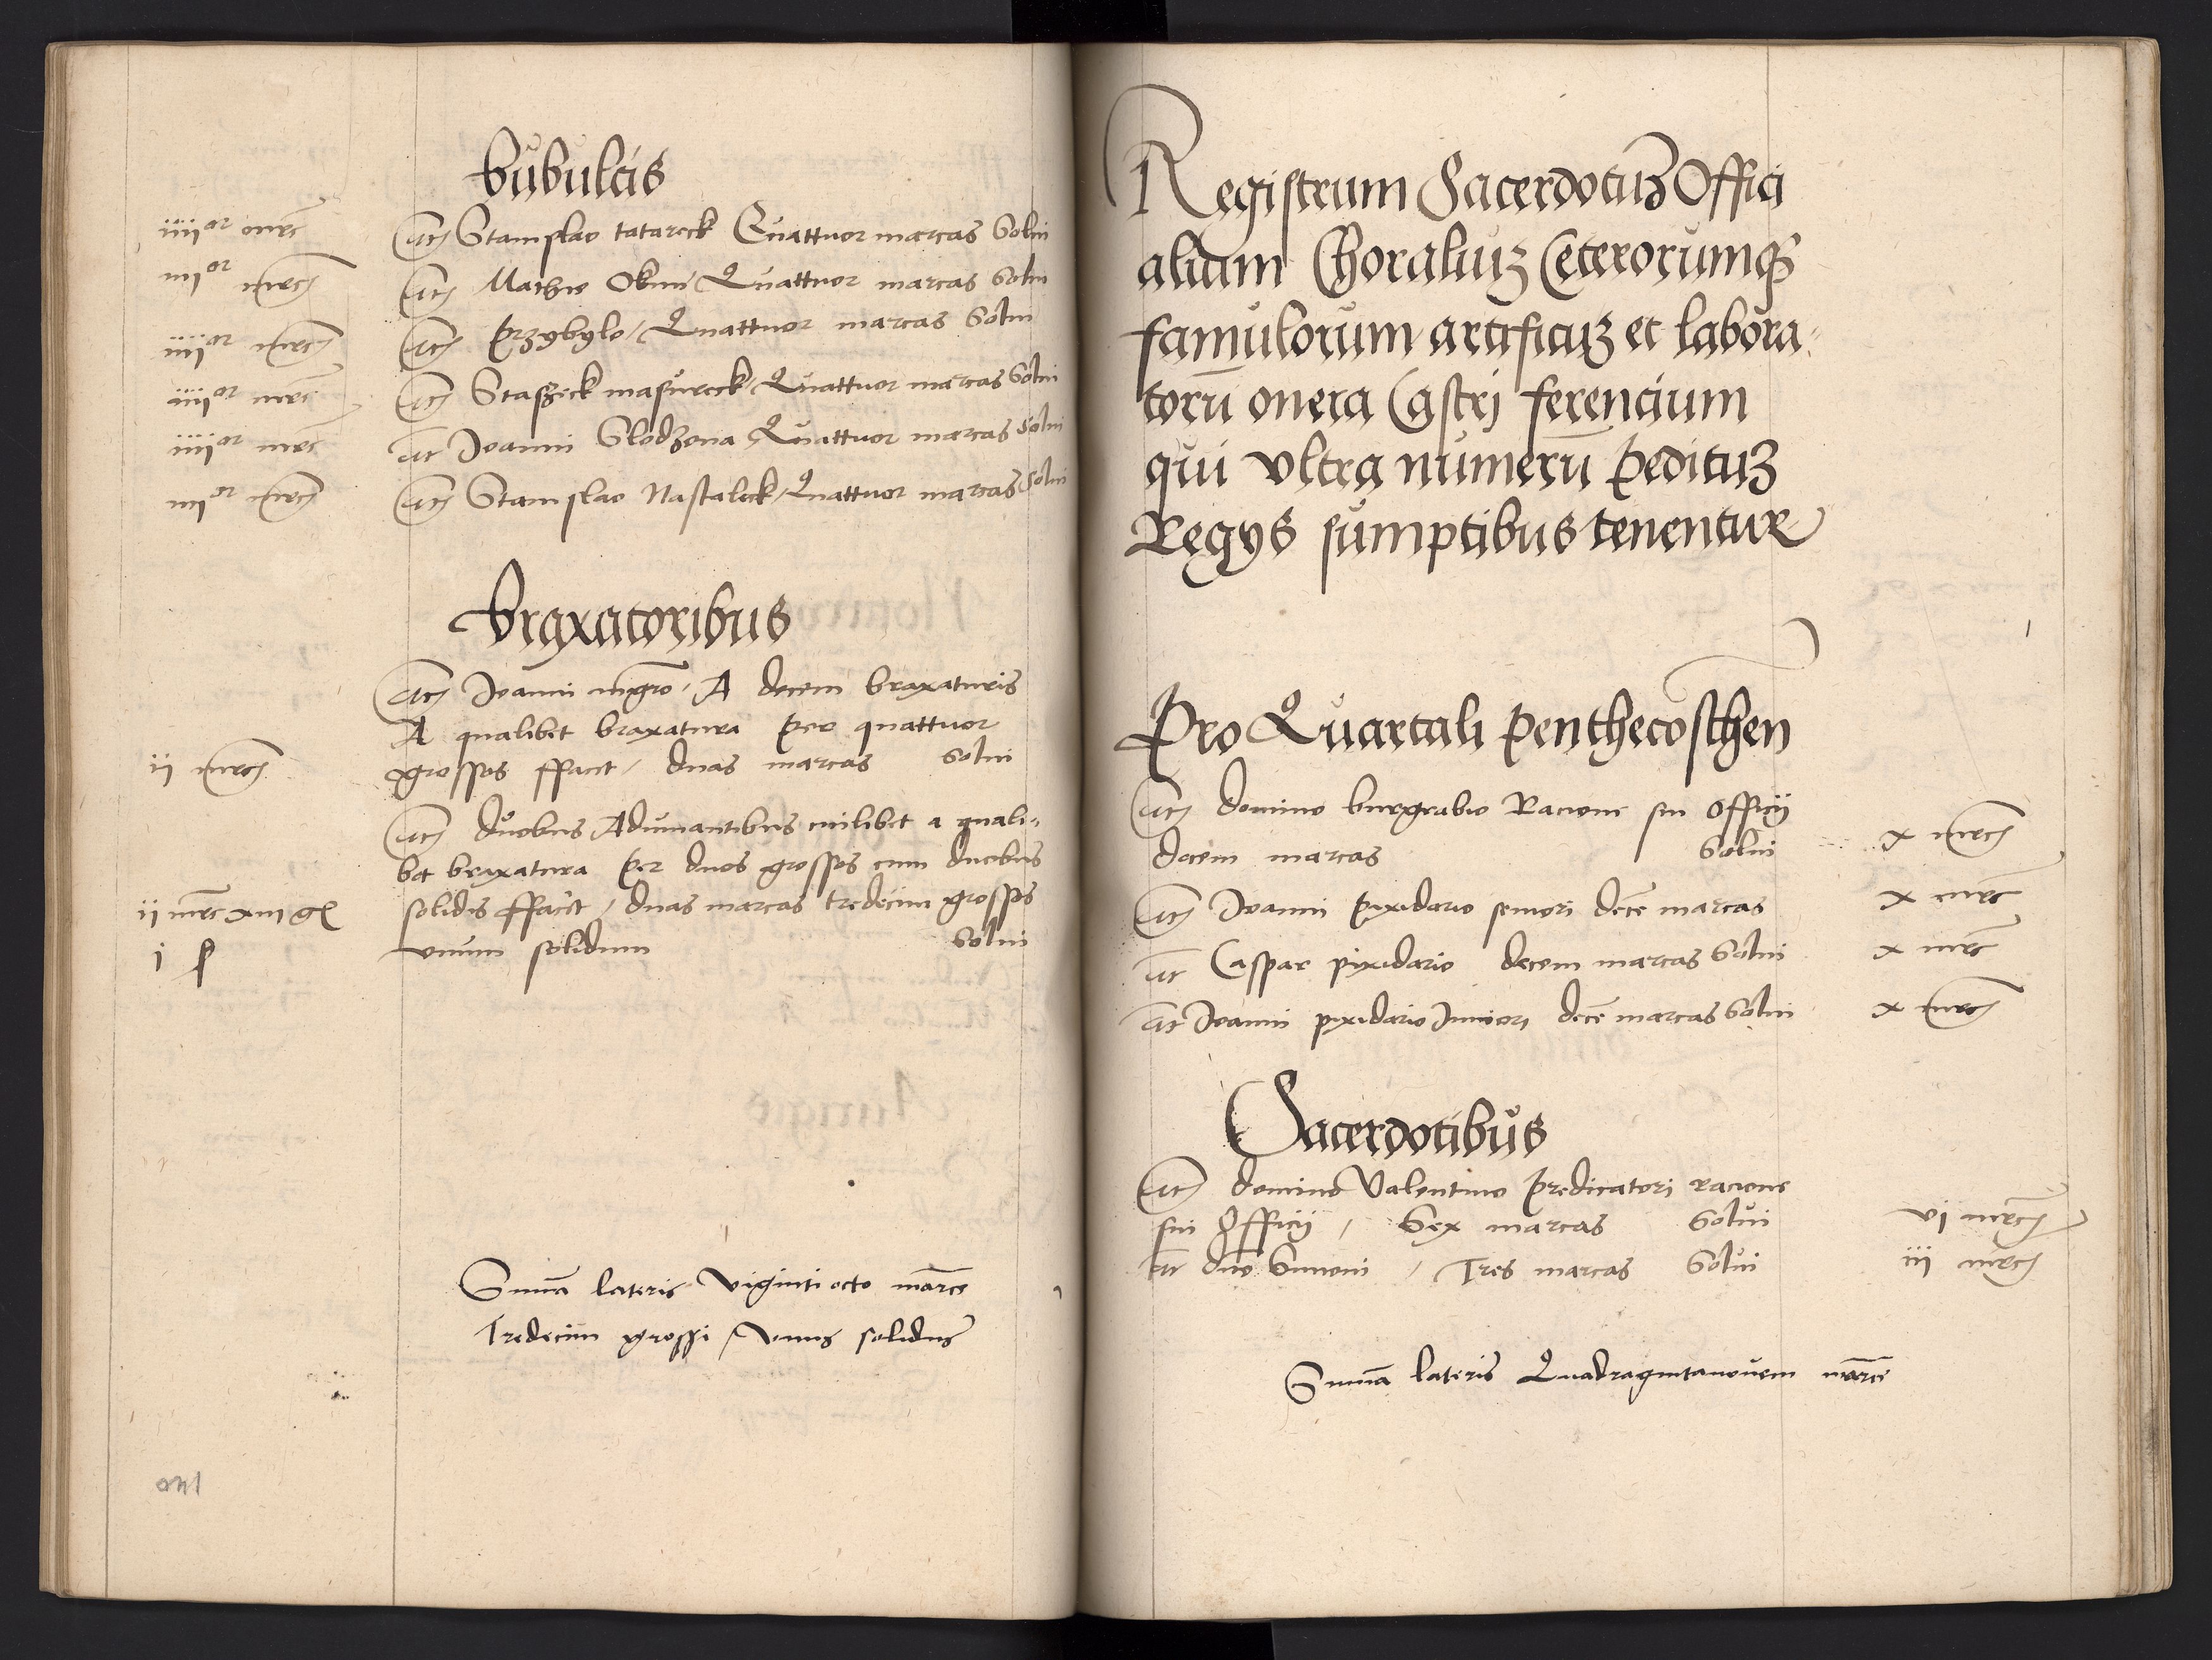 bubulcis
iiii or mrc Itē Stanislao tatareck Quattuor marcas Solui
iiii or mrc Itē Mathie Okuń Quattuor marcas Solui
iiii or mrc Itē Przybylo / Quattuor marcas Solui
iiii or mrc Itē Staszek masureck / Quattuor marcas Solui
iiii or mrc Itē Joanni Glodzona Quattuor marcas Solui
iiii or mrc Itē Stanislao Nastaleck / Quattuor marcas Solui
braxatoribus
Itē Joanni nigro / A decem braxaturis
A qualibet braxatura per quattuor
ii mrc grossos ffacit / duas marcas Solui
Itē duobus Adiuuantibus cuilibet a quali-
bet braxatura per duos grossos cum duobus
ii mrc xiii g solidis ffacit / duas marcas tredecim grossos
i ſ vnum solidum Solui
Sum̄a lateris viginti octo marce
Tredecim grossi / vnus solidus
Registrum Sacerdotuȝ Offici
alium Choraliuȝ Ceterorumqȝ
famulorum artificuȝ et labora-
torū onera Castri ferencium
qui vltra numerū peditūȝ
Regys sumptibus tenentur
Pro Quartali penthecosthen
Itē domino burgrabio Racione sui officij
decem marcas Solui x mrc
Itē Joanni pixidario seniori decē marcas x mrc
Itē Caspar pixidario decem marcas Solui x mrc
Itē Joanni pixidario Juniori decē marcas Solui x mrc
Sacerdotibus
Itē domino Valentino predicatori racione
sui Officij / Sex marcas Solui vi mrc
Itē dno Simoni / Tres marcas Solui iii mrc
Sum̄a lateris Quadragintanouem marce